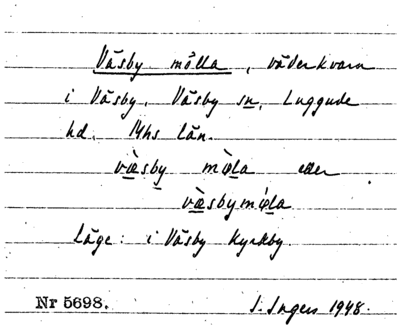 Väsby mölla, väderkvarn
i Väsby, Väsby sn, Luggude
hd. Mhs län.
væ̀sby mø̀la eller
væ̀sbymǿla
Läge: i Väsby kyrkby.
Nr 5698. I. Ingers 1948.